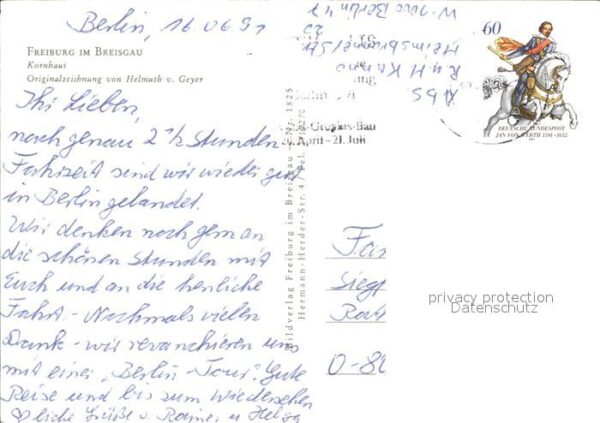 Berlin, 16.06.91
FREIBURG IM BREISGAU
Kornhaus
Originalzeichnung von Helmuth v. Geyer
Ihr Lieben,
nach genau 2 ½ Stunden
Fahrzeit sind wir wieder gut
in Berlin gelandet.
Wir denken noch gern an
die schönen Stunden mit
Euch und an die herrliche
Fahrt - Nochmals vielen
Dank - wir revanchieren uns
mit einer "Berlin-Tour". Gute
Reise und bis zum Wiedersehen
liche Grüße v. Rainer u Helga
Bildverlag Freiburg im Breisgau / Nr. 1825
Hermann-Herder-Str. 4 / Tel.
Abs
R. u H
W-1000 Berlin 47
60
DEUTSCHE BUNDESPOST
JAN VON WERTH 1591-1652
Gropius-Bau
April - 21. Juli
Fa
Siegf
O-
privacy protection
Datenschutz